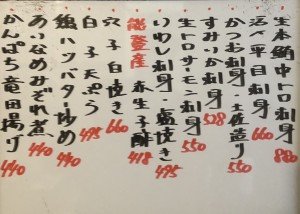 生本鮪中トロ刺身 880
活〆平目刺身 660
かつお刺身 土佐造り 550
すみいか刺身 528
生トロサーモン刺身 550
いわし刺身・塩焼き 495
能登産 赤生子酢 418
穴子白焼き 660
白子天ぷら 495
鮑バター炒め 440
あいなめみぞれ煮 440
かんぱち竜田揚げ 440